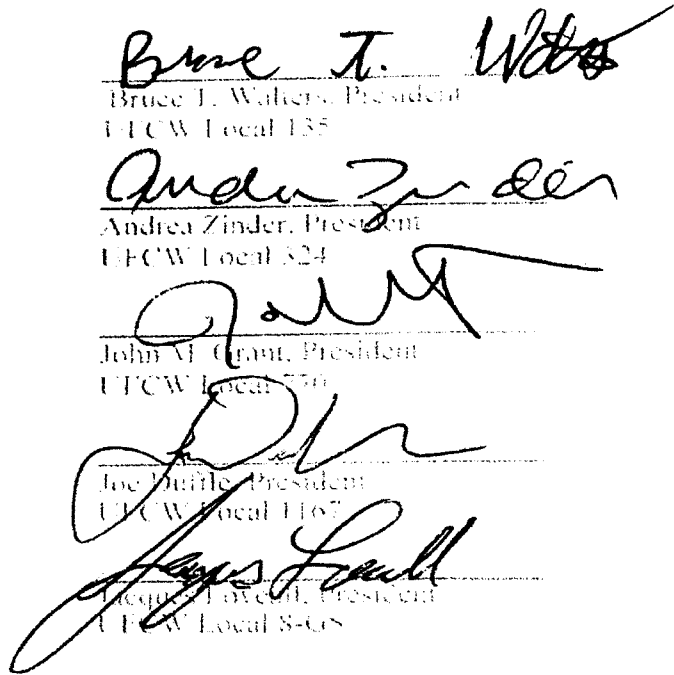 Bruce T. Walters
Bruce T. Walters, President
UFCW Local 135
Andrea Zinder
Andrea Zinder, President
UFCW Local 324
John M. Grant, President
UFCW Local 770
Joe Duffle, President
UFCW Local 1167
Jacques Loveall
Jacques Loveall, President
UFCW Local 8-GS